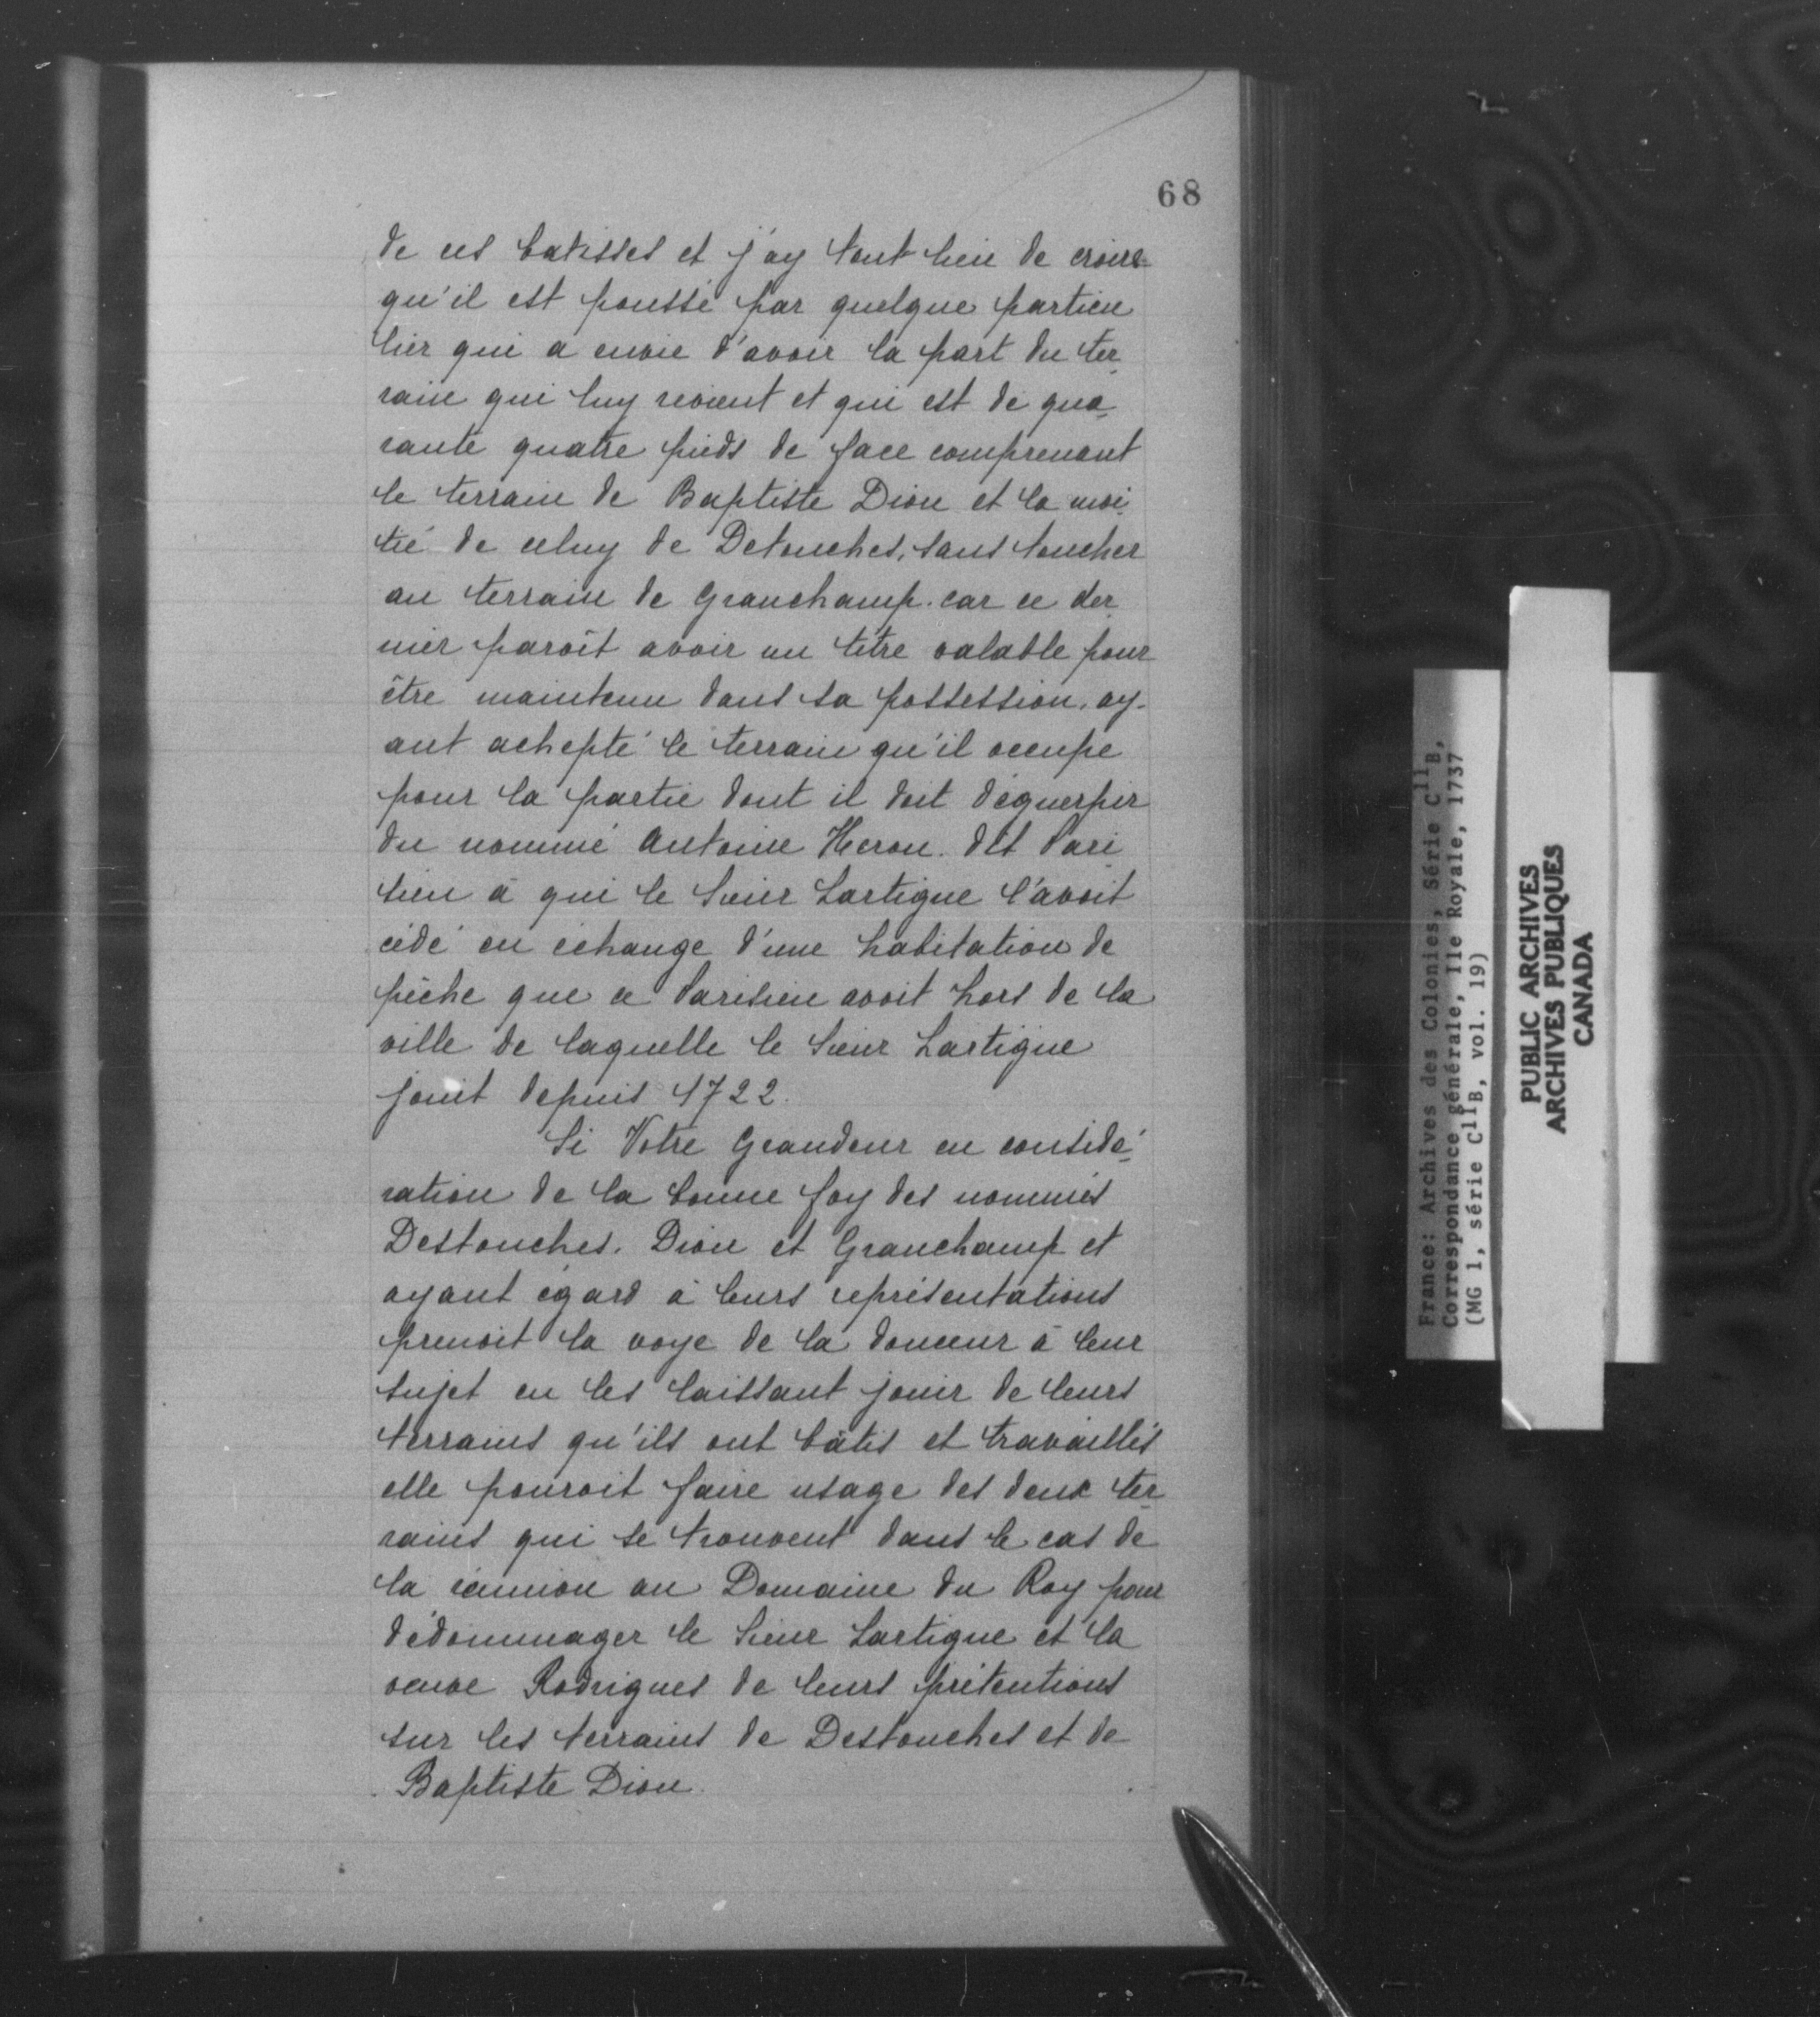 68
de ces batisses et j'ay tout lieu de croire
qu'il est poussé par quelque particu
lier qui a envie d'avoir la part du ter
rain qui luy revient et qui est de qua
rante quatre pieds de face comprenant
le terrain de Baptiste Dion et la moi
tié de celuy de Detouches, sans toucher
au terrain de Granchamp. car ce der
nier paroît avoir un titre valable pour
être maintenu dans sa possession, ay-
ant achepté le terrain qu'il occupe
pour la partie dont il doit déguerpir
du nommé Antoine Heron. dit Pari
sien à qui le Sieur Lartigue l'avoit
cédé en échange d'une habitation de
pêche que ce Parisien avoit hors de la
ville de laquelle le Sieur Lartigue
jouit depuis 1722.
Si Votre Grandeur en considé-
ration de la bonne foy des nommés
Destouches, Dion et Granchamp et
ayant égard à leurs représentations
prenoit la voye de la douceur à leur
sujet en les laissant jouir de leurs
terrains qu'ils ont bâtis et travaillés
elle pouroit faire usage des deux ter
rains qui se trouvent dans le cas de
la réunion au Domaine du Roy pour
dédommager le Sieur Lartigue et la
veuve Rodrigues de leurs prétentions
sur les terrains de Destouches et de
Baptiste Dion.
France: Archives des Colonies, Série C11B,
Correspondance générale, Ile Royale, 1737
(MG 1, série C11B, vol. 19)
PUBLIC ARCHIVES
ARCHIVES PUBLIQUES
CANADA